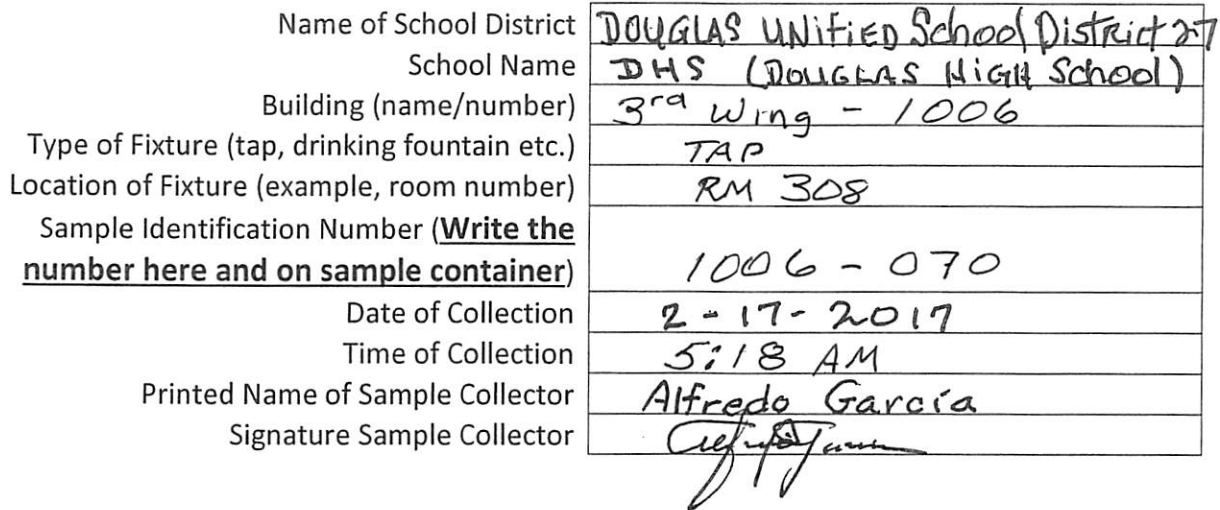 Name of School District DOUGLAS UNIFIED School District 27
School Name DHS (DOUGLAS HIGH School)
Building (name/number) 3rd Wing - 1006
Type of Fixture (tap, drinking fountain etc.) TAP
Location of Fixture (example, room number) RM 308
Sample Identification Number (Write the
number here and on sample container) 1006 - 070
Date of Collection 2 - 17 - 2017
Time of Collection 5:18 AM
Printed Name of Sample Collector Alfredo García
Signature Sample Collector